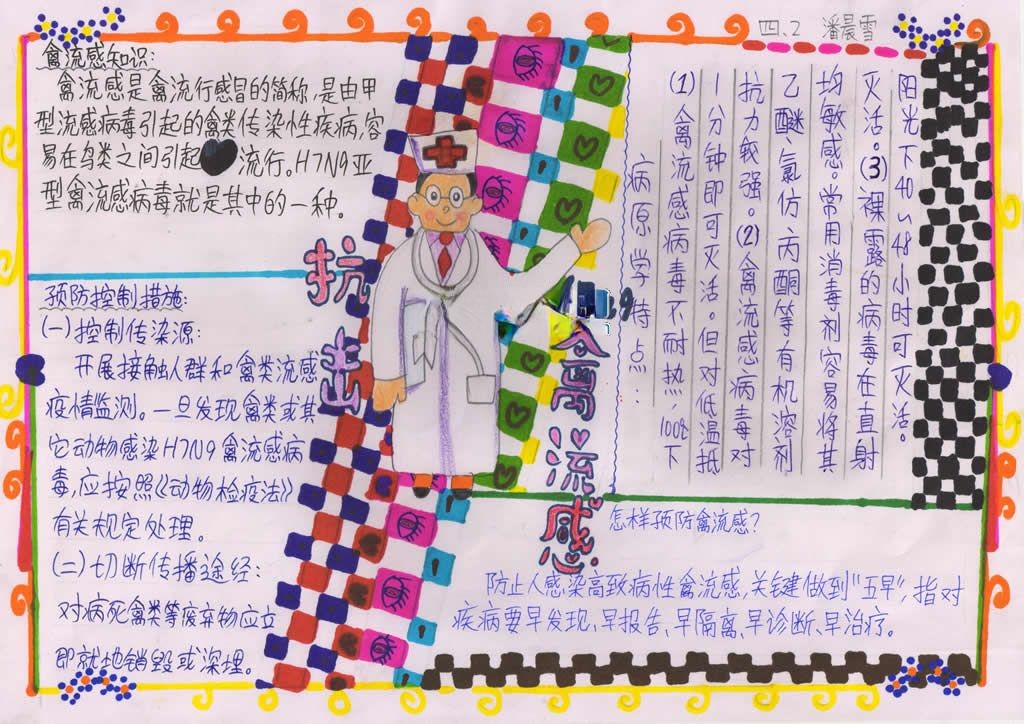 四.2 潘晨雪
禽流感知识:
禽流感是禽流行感冒的简称,是由甲
型流感病毒引起的禽类传染性疾病,容
易在鸟类之间引起流行。H7N9亚
型禽流感病毒就是其中的一种。
预防控制措施:
(一)控制传染源:
开展接触人群和禽类流感
疫情监测。一旦发现禽类或其
它动物感染H7N9禽流感病
毒,应按照《动物检疫法》
有关规定处理。
(二)切断传播途经:
对病死禽类等废弃物应立
即就地销毁或深埋。
抗击
9
禽流感
病原学特点:
(1)禽流感病毒不耐热,100℃下
1分钟即可灭活。但对低温抵
抗力较强。(2)禽流感病毒对
乙醚、氯仿、丙酮等有机溶剂
均敏感。常用消毒剂容易将其
灭活。(3)裸露的病毒在直射
阳光下40~48小时可灭活。
怎样预防禽流感?
防止人感染高致病性禽流感,关键做到"五早",指对
疾病要早发现、早报告、早隔离、早诊断、早治疗。